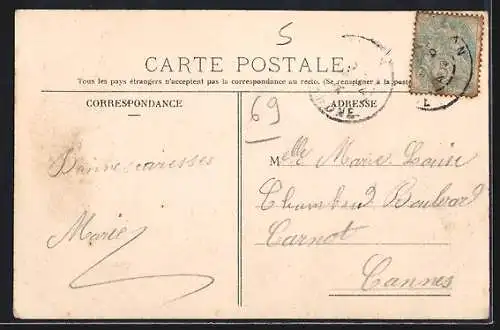 5
CARTE POSTALE
Tous les pays étrangers n'acceptent pas la correspondance au recto. (Se renseigner à la poste
CORRESPONDANCE
69
ADRESSE
Bonnes caresses
Marie
Melle Marie Louise
Boulevard
Carnot
Cannes